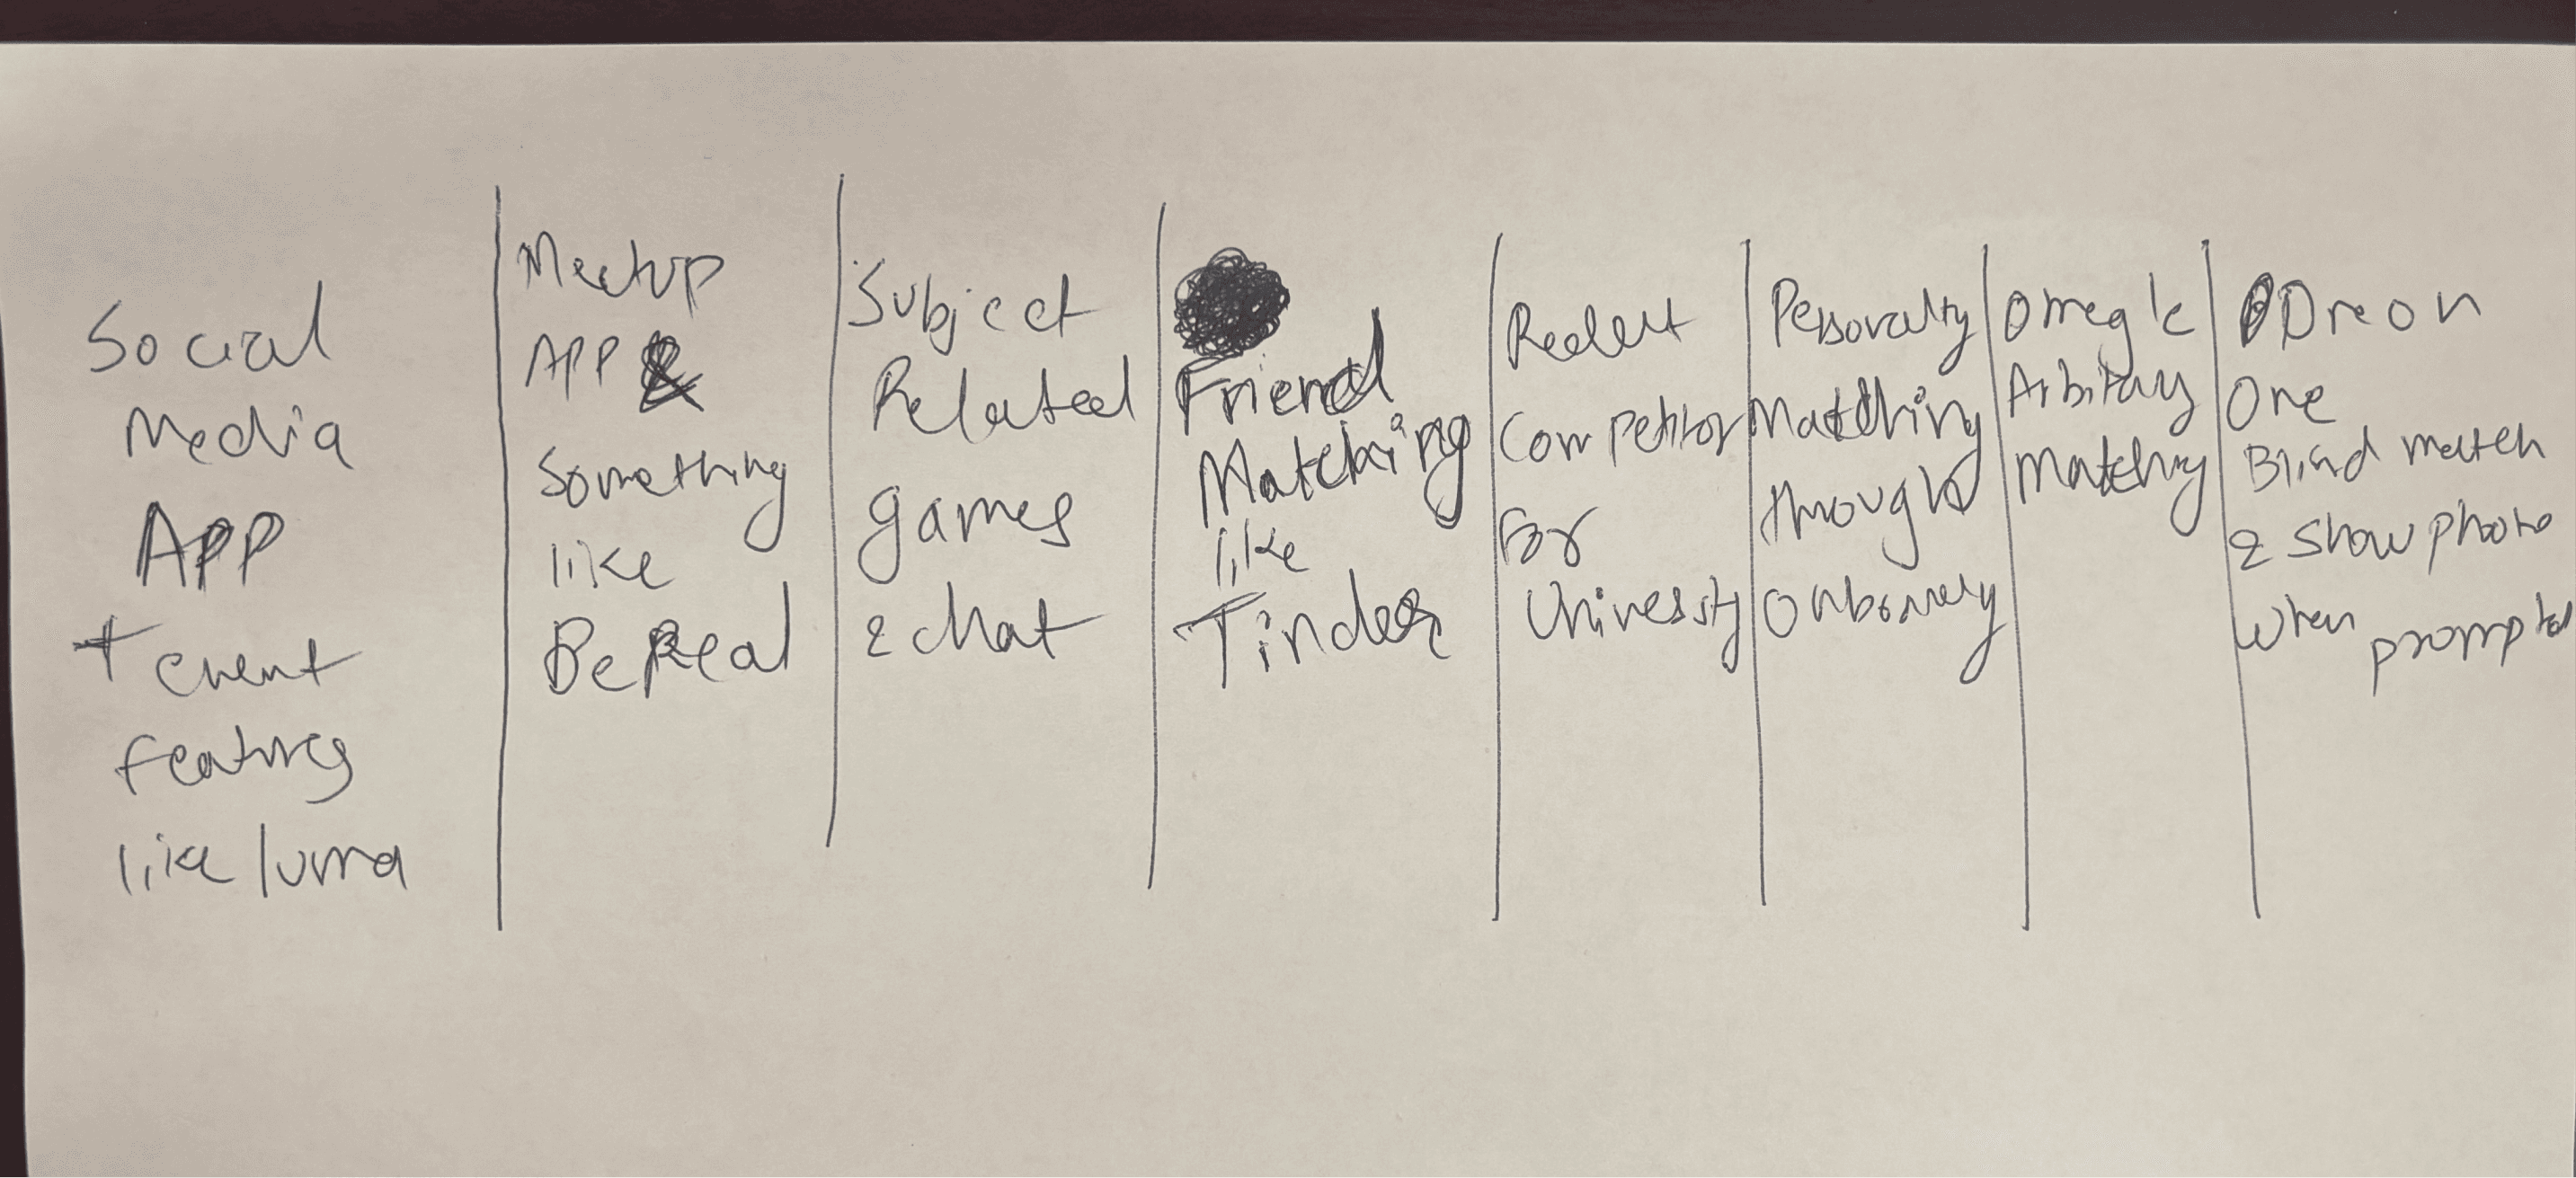 Social
Media
APP
+ event
features
like luma
Meetup
APP &
Something
like
BeReal
Subject
Related
games
& chat
Friend
Matching
like
Tinder
Competitor
for
University
Personality
Matching
through
Omegle
Arbitary
Matching
One on
One
Blind match
& Show photo
when
prompted